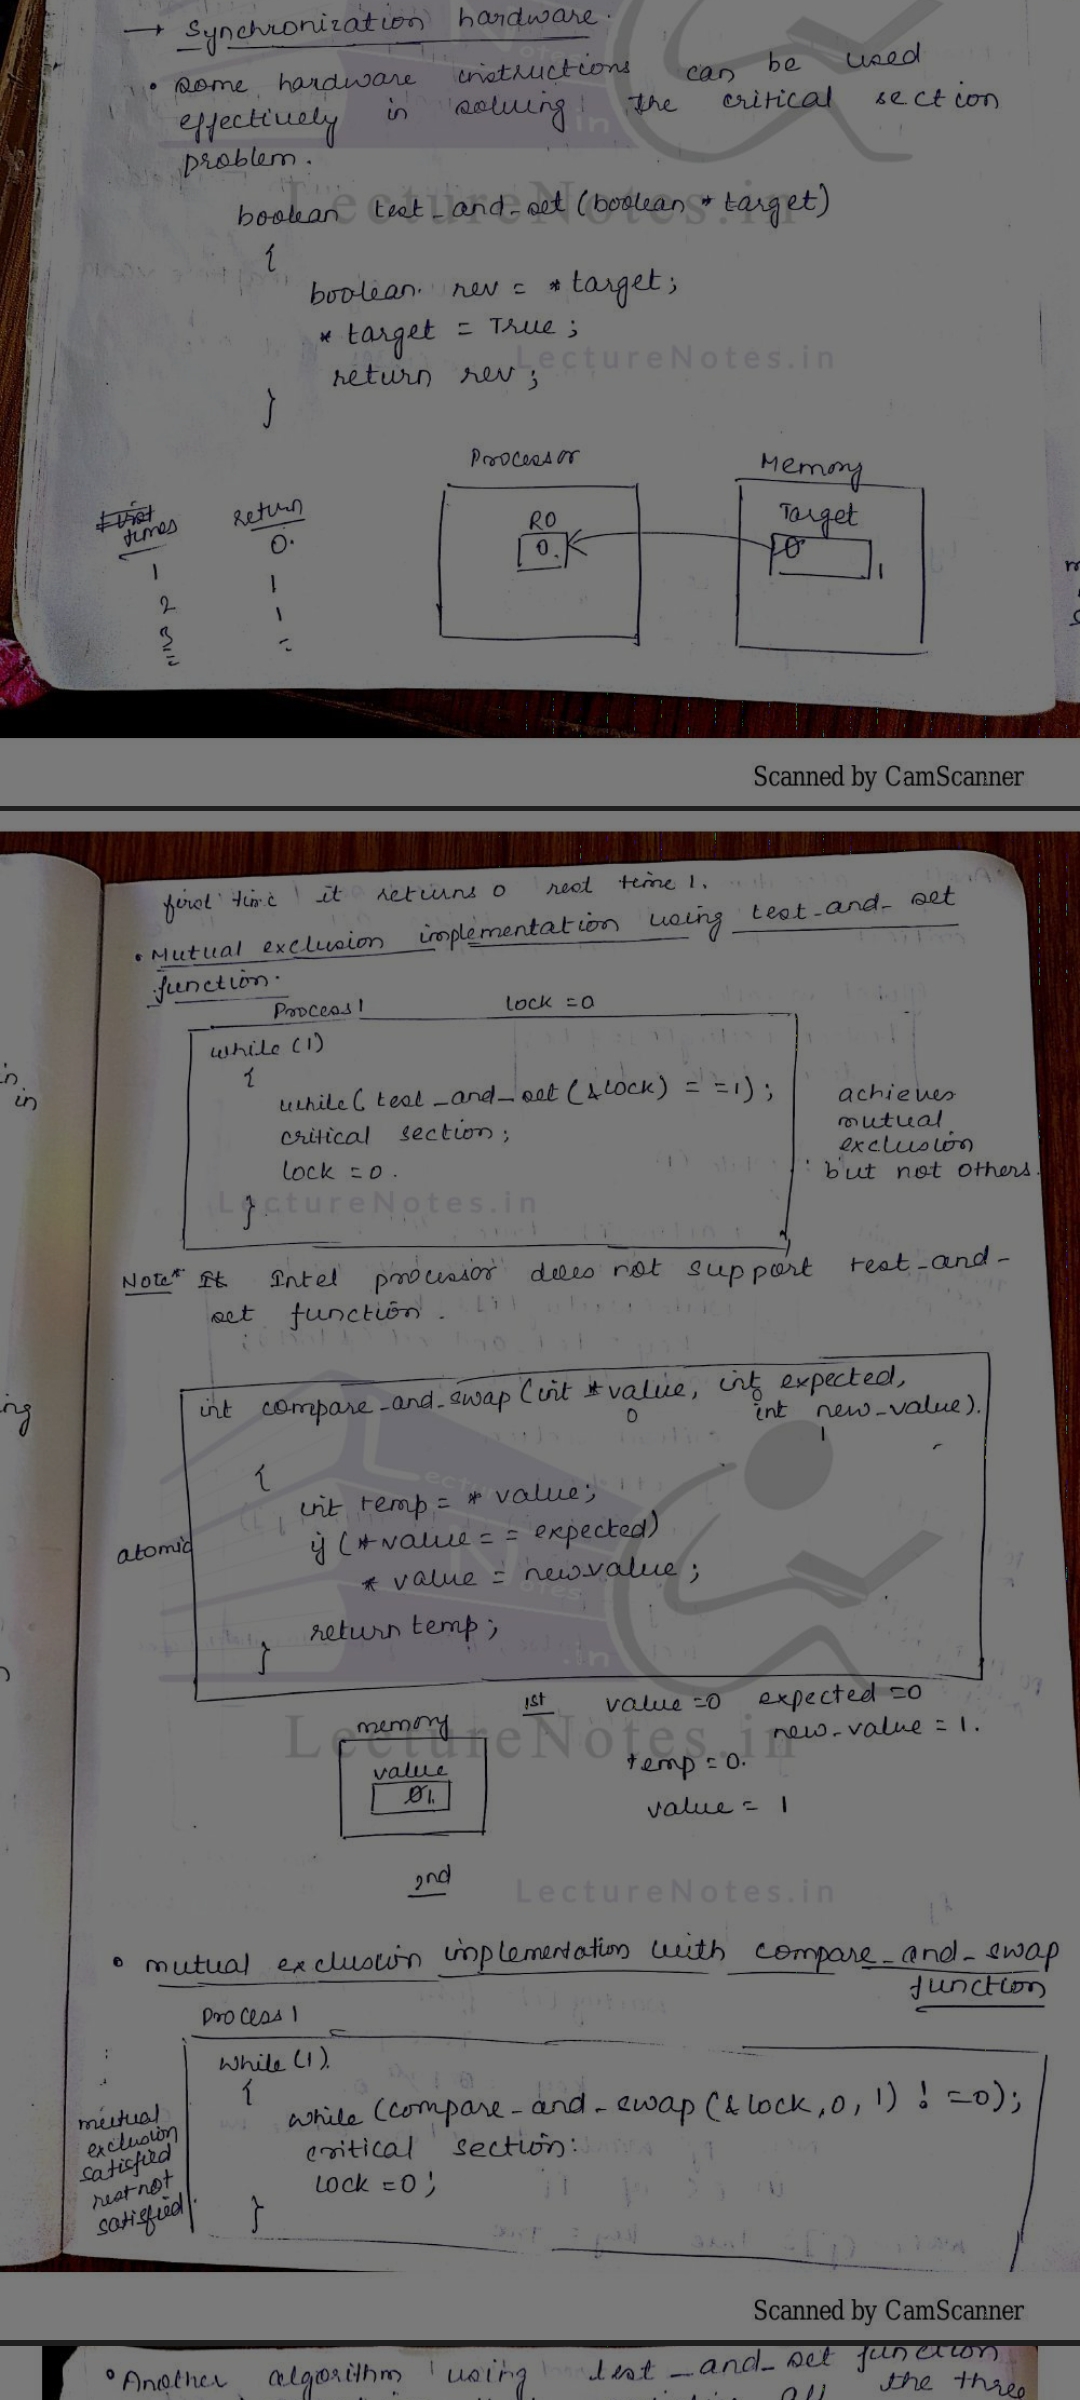 → Synchronization hardware.
• some hardware instructions can be used
effectively in solving the critical section
problem.
LectureNotes.in
boolean test_and_set (boolean * target)
{
boolean rev = * target;
* target = True;
LectureNotes.in
return rev;
}
Processor Memory
times return
R0 Target
0. 0. 0 1
1 1
2 1
3
Scanned by CamScanner
first time it returns 0 rest time 1.
• Mutual exclusion implementation using test_and_set
function.
Process 1 lock = 0
while (1)
{
while (test_and_set (&lock) = =1);
critical section;
lock = 0.
}
achieves
mutual
exclusion
but not others.
LectureNotes.in
Note* Intel processor does not support test-and-
set function.
int compare_and_swap (int * value, int expected,
0 0 int new_value).
1
{
int temp = * value;
if (* value = = expected)
* value = newvalue;
return temp;
}
atomic
1st value = 0 expected = 0
memory new-value = 1.
LectureNotes.in
value temp = 0.
01.
value = 1
2nd
LectureNotes.in
• mutual exclusion implementation with compare_and_swap
function
Process 1
while (1).
{
while (compare_and_swap (&lock, 0, 1) ! =0);
critical section:
lock = 0;
}
mutual
exclusion
satisfied
rest not
satisfied.
Scanned by CamScanner
• Another algorithm using test_and_set function
all the three